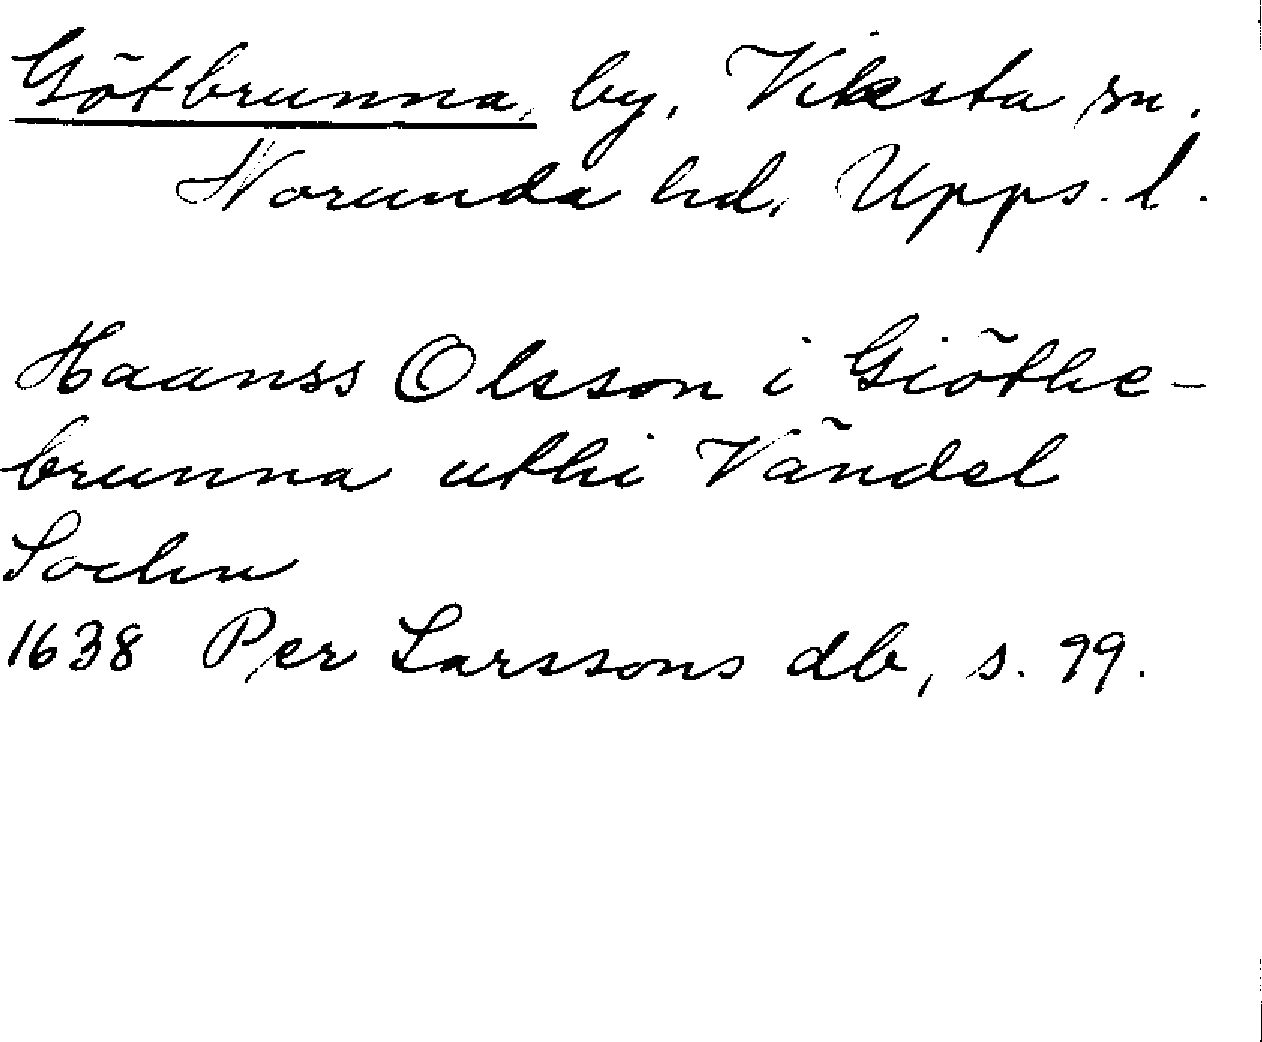 Götbrunna, by, Viksta sn.
Norunda hd, Upps. l.
Haanss Olsson i Giöthe-
brunna uthi Vändel
Sochn
1638 Per Larssons db, s. 99.